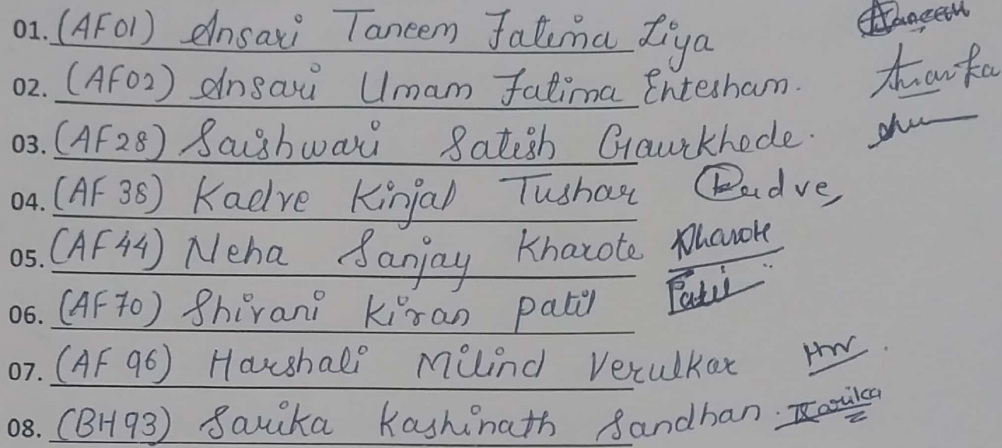 01. (AF01) Ansari Taneem Fatima Ziya Taneem
02. (AF02) Ansari Umam Fatima Entesham.
03. (AF28) Saishwari Satish Gaurkhede.
04. (AF 38) Kadve Kinjal Tushar Kadve
05. (AF44) Neha Sanjay Kharote Kharote
06. (AF70) Shivani Kiran patil Patil
07. (AF 96) Harshali Milind Verulkar
08. (BH93) Sarika Kashinath Sandhan. Sarika